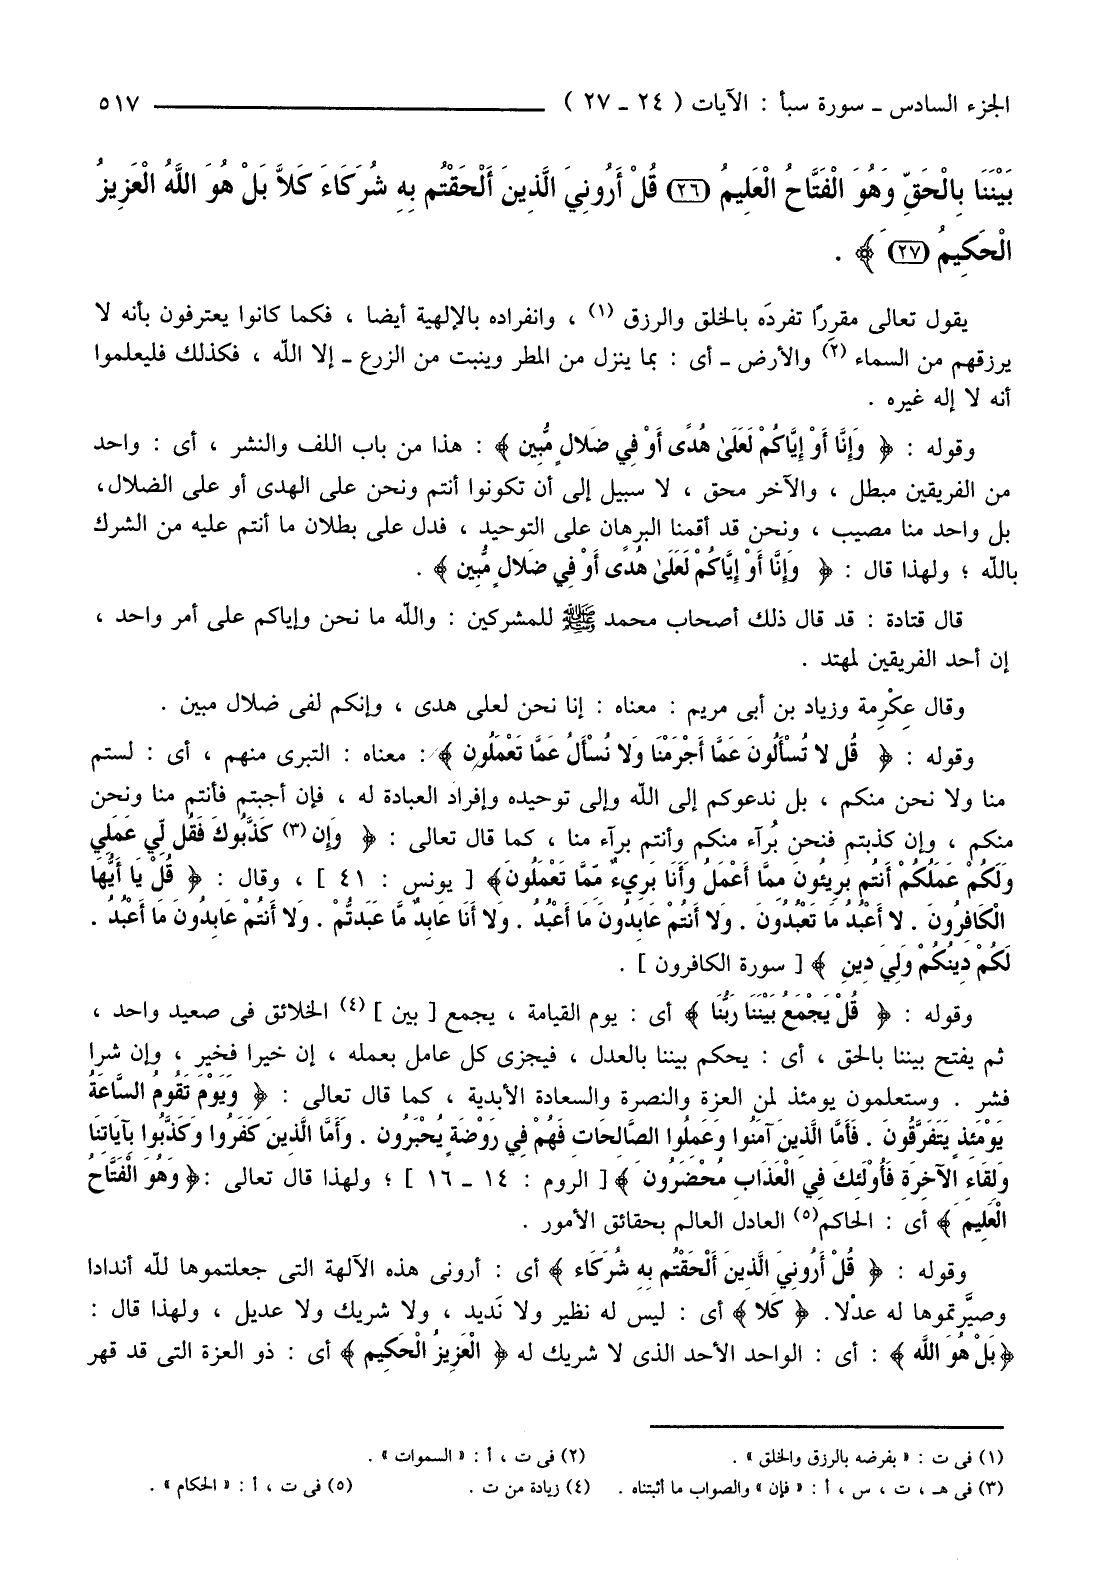 الجزء السادس ــ سورة سبأ : الآيات ( ٢٤ ــ ٢٧ ) ٥١٧
بَيْنَنَا بِالْحَقِّ وَهُوَ الْفَتَّاحُ الْعَلِيمُ (٢٦) قُلْ أَرُونِيَ الَّذِينَ أَلْحَقْتُم بِهِ شُرَكَاءَ كَلاَّ بَلْ هُوَ اللَّهُ الْعَزِيزُ
الْحَكِيمُ (٢٧) ﴾ .
يقول تعالى مقررًا تفردَه بالخلق والرزق (١) ، وانفراده بالإلهية أيضا ، فكما كانوا يعترفون بأنه لا
يرزقهم من السماء (٢) والأرض ــ أى : بما ينزل من المطر وينبت من الزرع ــ إلا الله ، فكذلك فليعلموا
أنه لا إله غيره .
وقوله : ﴿ وَإِنَّا أَوْ إِيَّاكُمْ لَعَلَىٰ هُدًى أَوْ فِي ضَلالٍ مُّبِين ﴾ : هذا من باب اللف والنشر ، أى : واحد
من الفريقين مبطل ، والآخر محق ، لا سبيل إلى أن تكونوا أنتم ونحن على الهدى أو على الضلال،
بل واحد منا مصيب ، ونحن قد أقمنا البرهان على التوحيد ، فدل على بطلان ما أنتم عليه من الشرك
بالله ؛ ولهذا قال : ﴿ وَإِنَّا أَوْ إِيَّاكُمْ لَعَلَىٰ هُدًى أَوْ فِي ضَلالٍ مُّبِين ﴾ .
قال قتادة : قد قال ذلك أصحاب محمد ﷺ للمشركين : والله ما نحن وإياكم على أمر واحد ،
إن أحد الفريقين لمهتد .
وقال عِكْرِمة وزياد بن أبى مريم : معناه : إنا نحن لعلى هدى ، وإنكم لفى ضلال مبين .
وقوله : ﴿ قُل لا تُسْأَلُونَ عَمَّا أَجْرَمْنَا وَلا نُسْأَلُ عَمَّا تَعْمَلُون ﴾ : معناه : التبرى منهم ، أى : لستم
منا ولا نحن منكم ، بل ندعوكم إلى الله وإلى توحيده وإفراد العبادة له ، فإن أجبتم فأنتم منا ونحن
منكم ، وإن كذبتم فنحن بُرآء منكم وأنتم برآء منا ، كما قال تعالى : ﴿ وَإِن (٣) كَذَّبُوكَ فَقُل لِّي عَمَلِي
وَلَكُمْ عَمَلُكُمْ أَنتُم بَرِيئُونَ مِمَّا أَعْمَلُ وَأَنَا بَرِيءٌ مِّمَّا تَعْمَلُون﴾ [ يونس : ٤١ ] ، وقال : ﴿ قُلْ يَا أَيُّهَا
الْكَافِرُونَ . لا أَعْبُدُ مَا تَعْبُدُونَ . وَلا أَنتُمْ عَابِدُونَ مَا أَعْبُدُ . وَلا أَنَا عَابِدٌ مَّا عَبَدتُّمْ . وَلا أَنتُمْ عَابِدُونَ مَا أَعْبُد .
لَكُمْ دِينُكُمْ وَلِيَ دِينِ ﴾ [ سورة الكافرون ] .
وقوله : ﴿ قُلْ يَجْمَعُ بَيْنَنَا رَبُّنَا ﴾ أى : يوم القيامة ، يجمع [ بين ] (٤) الخلائق فى صعيد واحد ،
ثم يفتح بيننا بالحق ، أى : يحكم بيننا بالعدل ، فيجزى كل عامل بعمله ، إن خيرا فخير ، وإن شرا
فشر . وستعلمون يومئذ لمن العزة والنصرة والسعادة الأبدية ، كما قال تعالى : ﴿ وَيَوْمَ تَقُومُ السَّاعَةُ
يَوْمَئِذٍ يَتَفَرَّقُونَ . فَأَمَّا الَّذِينَ آمَنُوا وَعَمِلُوا الصَّالِحَاتِ فَهُمْ فِي رَوْضَةٍ يُحْبَرُون . وَأَمَّا الَّذِينَ كَفَرُوا وَكَذَّبُوا بِآيَاتِنَا
وَلِقَاءِ الآخِرَةِ فَأُوْلَئِكَ فِي الْعَذَابِ مُحْضَرُونَ ﴾ [ الروم : ١٤ ــ ١٦ ] ؛ ولهذا قال تعالى :﴿ وَهُوَ الْفَتَّاحُ
الْعَلِيم ﴾ أى : الحاكم(٥) العادل العالم بحقائق الأمور .
وقوله : ﴿ قُلْ أَرُونِيَ الَّذِينَ أَلْحَقْتُم بِهِ شُرَكَاء ﴾ أى : أرونى هذه الآلهة التى جعلتموها لله أندادا
وصيَّرتموها له عدْلا. ﴿ كَلا ﴾ أى : ليس له نظير ولا نَديد ، ولا شريك ولا عديل ، ولهذا قال :
﴿بَلْ هُوَ اللَّه ﴾ : أى : الواحد الأحد الذى لا شريك له ﴿ الْعَزِيزُ الْحَكِيم ﴾ أى : ذو العزة التى قد قهر
(١) فى ت : « بفرضه بالرزق والخلق » . (٢) فى ت ، أ : « السموات » .
(٣) فى هـ ، ت ، س ، أ : « فإن » والصواب ما أثبتناه . (٤) زيادة من ت . (٥) فى ت ، أ : « الحكام » .